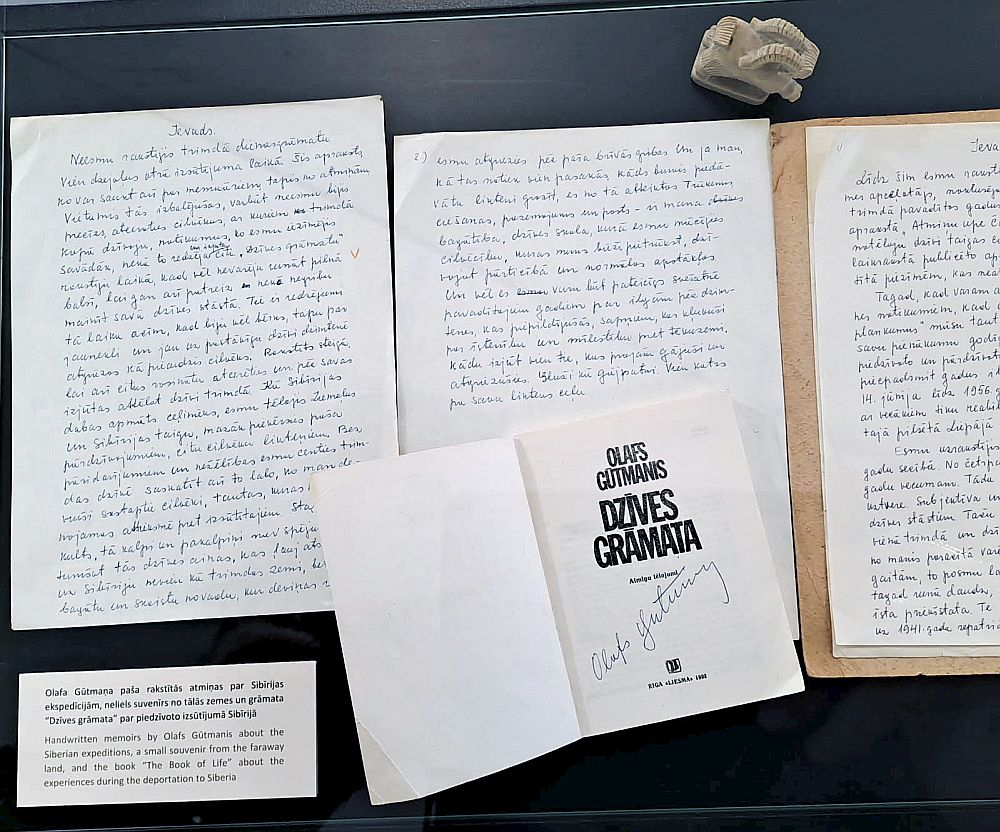 Ievads.
Neesmu rakstījis trimdā dienasgrāmatu.
Vien dzejoļus otrā izsūtījuma laikā. Šis apraksts,
ko var saukt arī par memuāriem, tapis no atmiņām.
Vietumis tās izbalējušas, varbūt neesmu bijis
precīzs, atceroties cilvēkus, ar kuriem trimdā
kopā dzīvoju, notikumus, ko esmu uzzīmējis
savādāk, nekā to redzējuši citi. "Dzīves grāmatu"
rakstīju laikā, kad vēl nevarēju runāt pilnā
balsī, lai gan arī patreiz negribu
mainīt savā dzīves stāstā. Tie ir redzējumi
tā laika acīm, kad biju vēl bērns, tapu par
jaunekli un jau uz pastāvīgu dzīvi dzimtenē
atgriezos kā pieaudzis cilvēks. Rakstīts steigā,
lai arī citus rosinātu atcerēties un pēc savas
izjūtas atklāt dzīvi trimdā. Kā Sibīrijas
dabas apmāts ceļinieks, esmu tēlojis Ziemeļus
un Sibīrijas taigu, mazāk pievērsies paša
pārdzīvojumiem, citu cilvēku likteņiem. Bez
pāridarījumiem un nežēlības esmu centies trim-
das dzīvē saskatīt arī to labo, ko man de-
vuši sastaptie cilvēki, tautas, kuras
nojamas attieksmē pret izsūtītajiem.
kults, tā kalpi un pakalpiņi nav spējuši
tumšot tās dzīves ainas, kas ļauj
uz Sibīriju nevien kā trimdas zemi, bet
bagātu un skaistu novadu, kur deviņas
2.) esmu atgriezies pēc paša brīvās gribas. Un ja man,
kā tas notiek vien pasakās, kāds burvis piedā-
vātu likteni grozīt, es no tā atteiktos. Trūkums,
ciešanas, pazemojumi un posts – ir mana
bagātība, dzīves skola, kurā esmu mācījies
cilvēcību, kuras mums bieži pietrūkst, dzī-
vojot pārticībā un normālos apstākļos.
Un vēl es varu būt pateicīgs svešatnē
pavadītajiem gadiem par ilgām pēc dzim-
tenes, kas piepildījušās, sapņiem, kas kļuvuši
par īstenību un mīlestību pret tēvzemi.
kādu izjūt vien tie, kus projām gājuši un
atgriezušies. Gluži kā gājputni. Vien katrs
pa savu likteņa ceļu.
2)
Ieva
Līdz šim esmu rakst
mes apcelotājs, novēro
trimdā pavadītos gadus
aprakstā „Atmiņu upe
notēloju dzīvi taigas
laikrakstā publicēto ap
šīta piezīmēm, kas nea
Tagad, kad varam a
nes notikumiem, kad
plankumus" mūsu taut
savu pienākumu godīg
piedzīvoto un pārdzīvoto
piecpadsmit gadus
14. jūnija līdz 1956. g
ar vecākiem tiku reabil
tajā pilsētā Liepājā
Esmu uzrakstījis
gadu secībā. No četrpa
gadu vecumam. Tādu
uztvere. Subjektīva un
dzīves stāstiem. Taču
vienā trimdā un dzī
no manis prasītā var
gaitām, to posmu la
tagad runā daudz,
īsta priekšstata. Te
uz 1941. gada repatri
OLAFS
GŪTMANIS
DZĪVES
GRĀMATA
Atmiņu tēlojumi
Olafs Gūtmanis
RĪGA «LIESMA» 1992
Olafa Gūtmaņa paša rakstītās atmiņas par Sibīrijas
ekspedīcijām, neliels suvenīrs no tālās zemes un grāmata
"Dzīves grāmata" par piedzīvoto izsūtījumā Sibīrijā
Handwritten memoirs by Olafs Gūtmanis about the
Siberian expeditions, a small souvenir from the faraway
land, and the book "The Book of Life" about the
experiences during the deportation to Siberia